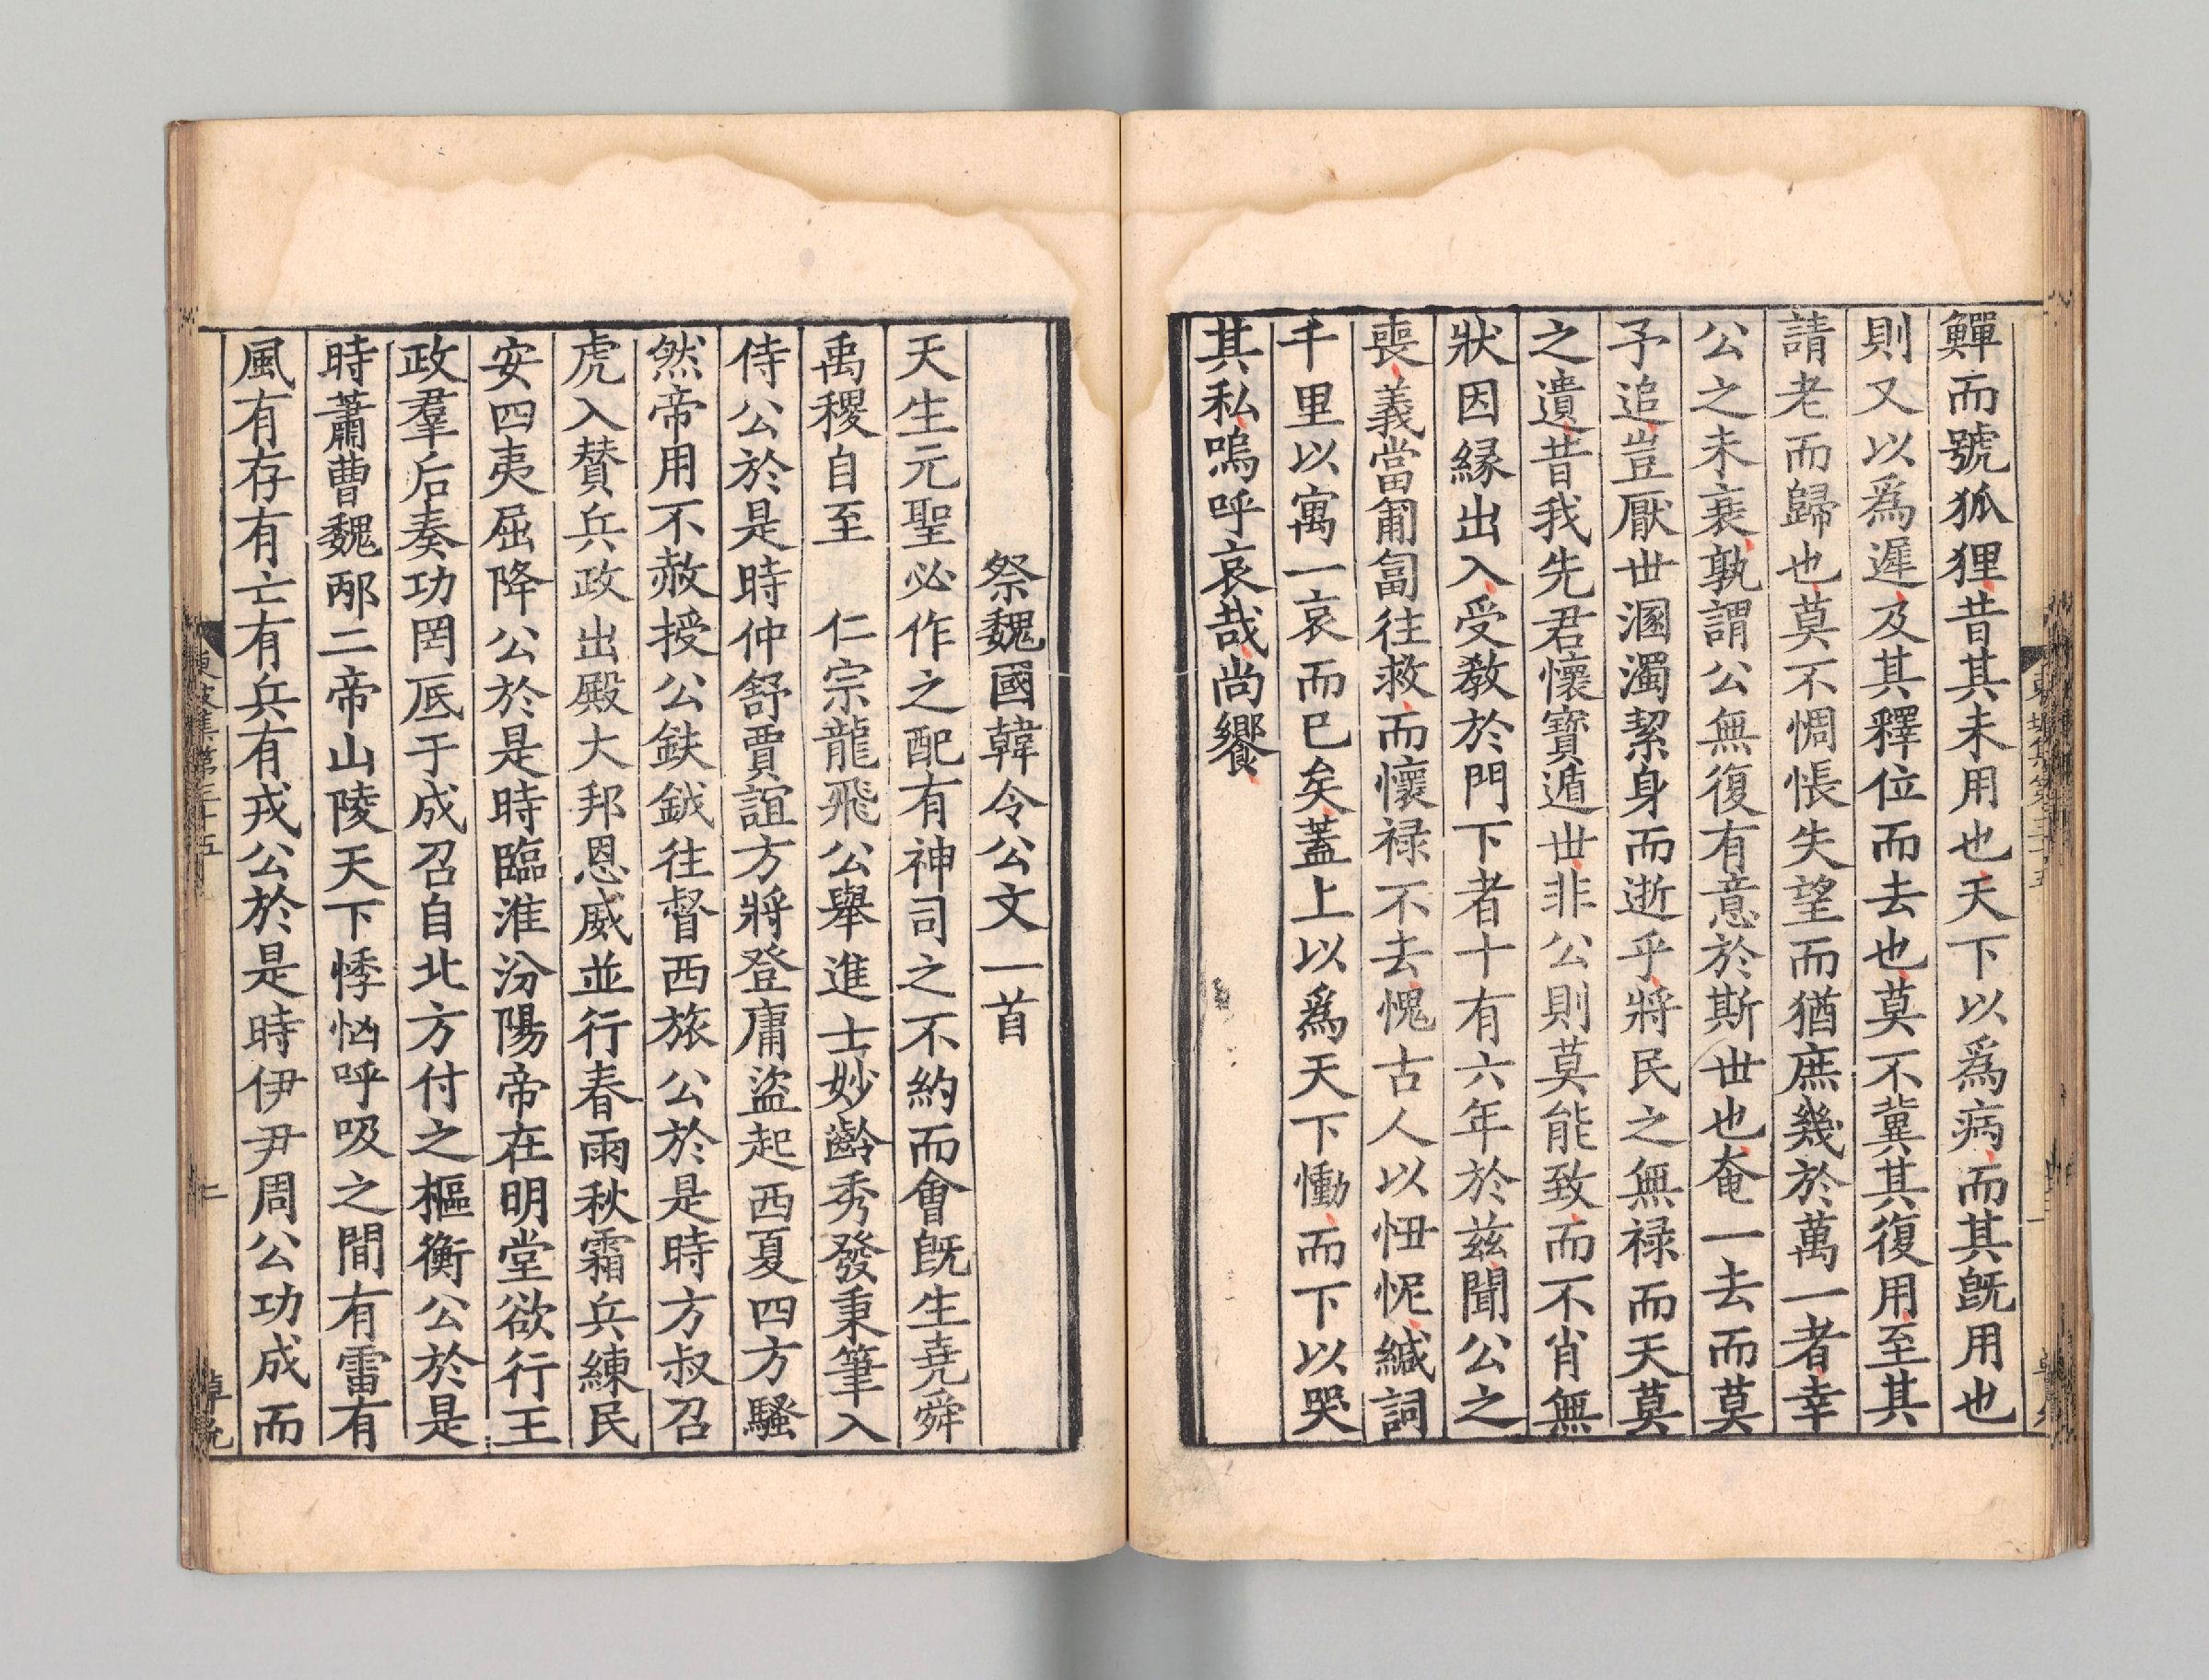 鱓而號狐狸昔其未用也天下以爲病而其既用也
則又以爲遲及其釋位而去也莫不冀其復用至其
請老而歸也莫不惆悵失望而猶庶幾於萬一者幸
公之未衰孰謂公無復有意於斯世也奄一去而莫
予追豈厭世溷濁絜身而逝乎將民之無禄而天莫
之遺昔我先君懷寶遁世非公則莫能致而不肖無
狀因縁出入受教於門下者十有六年於茲聞公之
喪義當匍匐往救而懷禄不去愧古人以忸怩緘詞
千里以寓一哀而已矣蓋上以爲天下慟而下以哭
其私嗚呼哀哉尚饗
祭魏國韓令公文一首
天生元聖必作之配有神司之不約而會既生堯舜
禹稷自至 仁宗龍飛公舉進士妙齡秀發秉筆入
侍公於是時仲舒賈誼方將登庸盜起西夏四方騷
然帝用不赦授公鈇鉞往督西旅公於是時方叔召
虎入賛兵政出殿大邦恩威並行春雨秋霜兵練民
安四夷屈降公於是時臨淮汾陽帝在明堂欲行王
政羣后奏功罔厎于成召自北方付之樞衡公於是
時蕭曹魏邴二帝山陵天下悸恟呼吸之間有雷有
風有存有亡有兵有戎公於是時伊尹周公功成而
東坡集第三十五
二